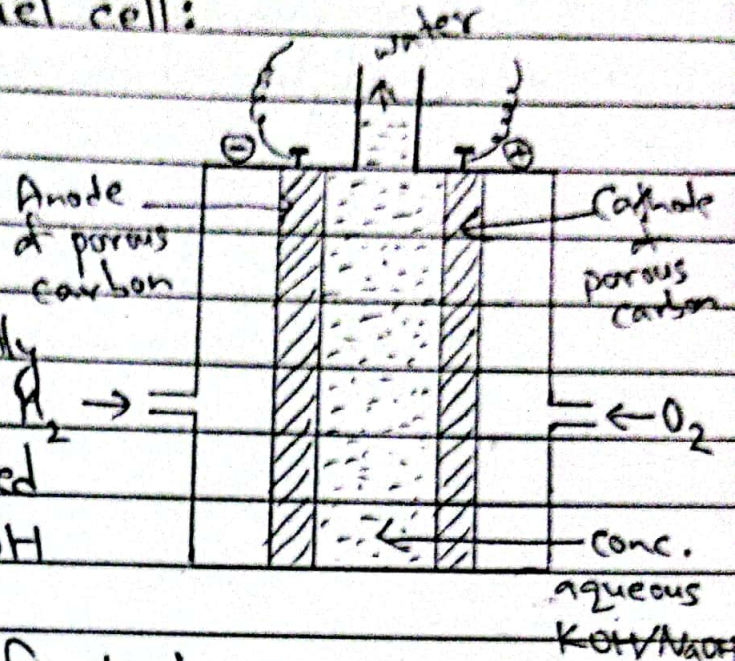 uel cell:
water
⊖
⊕
Anode
of porous
carbon
Cathode
of
porous
carbon
lly
H₂ →
← O₂
ed
OH
conc.
aqueous
KOH/NaOH